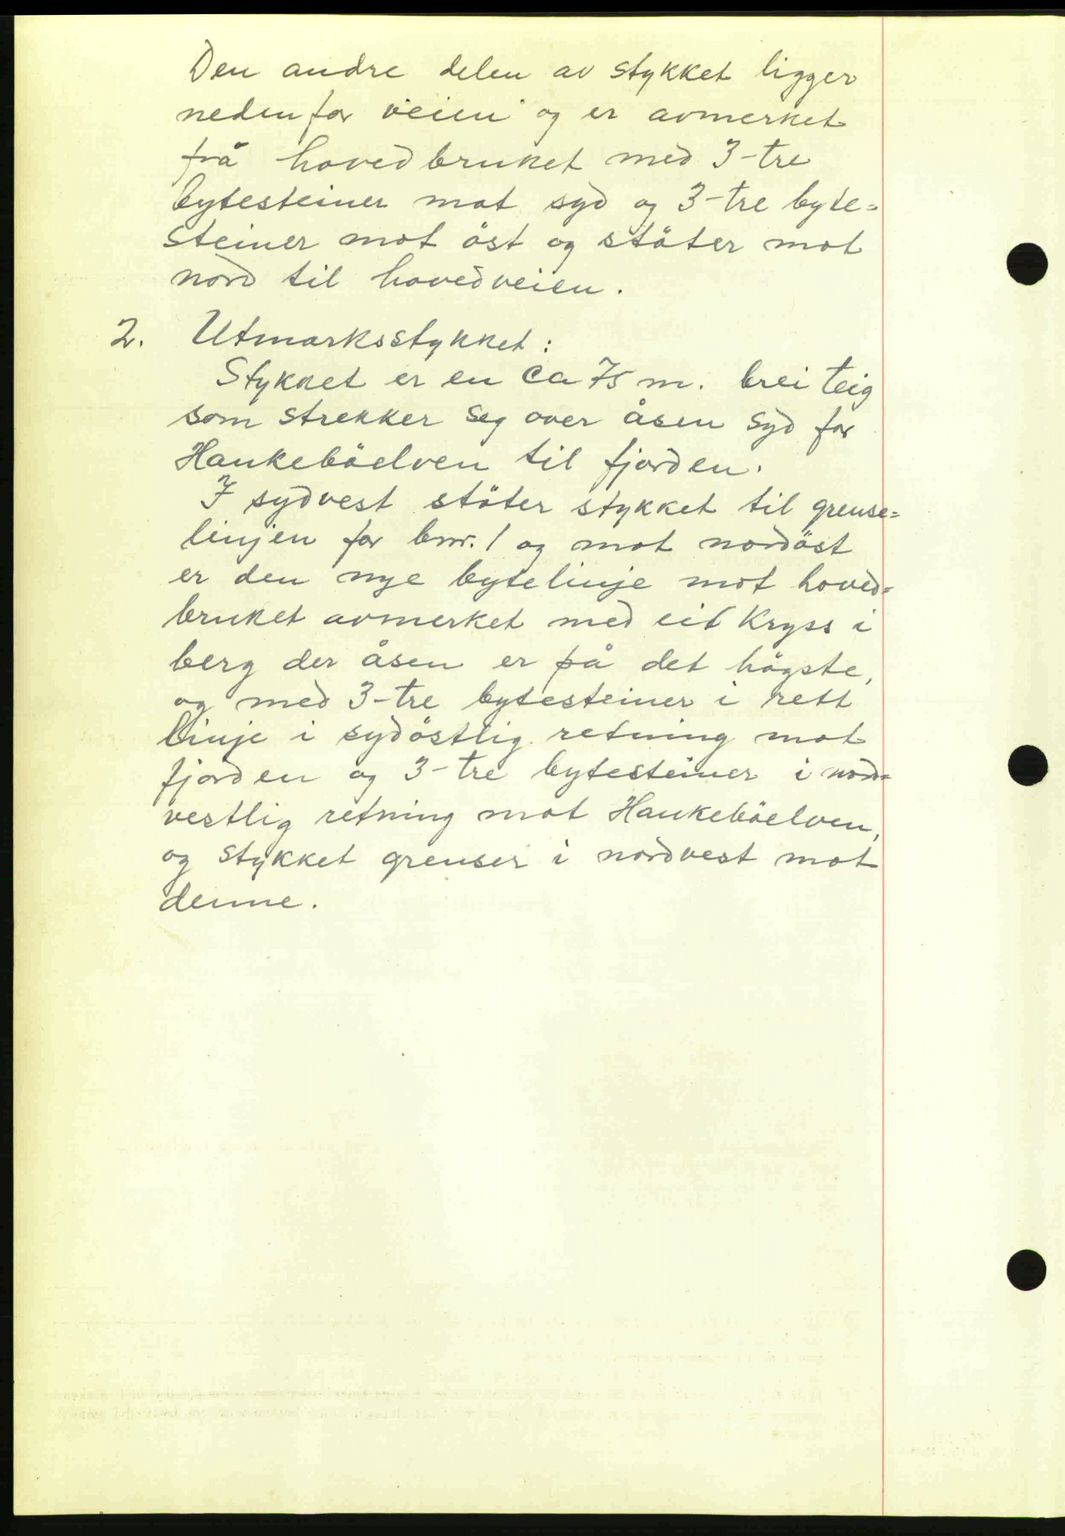 Den andre delen av stykket ligger
nedenfor veien og er avmerket
frå hovedbruket med 3-tre
bytesteiner mot syd og 3-tre byte=
steiner mot öst og stöter mot
nord til hovedveien.
2. Utmarksstykket:
Stykket er en ca 75 m. brei teig
som strekker seg over åsen syd for
Haukebóelven til fjorden.
I sydvest stöter stykket til grense=
linjen for bnr. 1 og mot nordöst
er den nye bytelinje mot hoved=
bruket avmerket med eit kryss i
berg der åsen er på det högste,
og med 3-tre bytesteiner i rett
linje i sydöstlig retning mot
fjorden og 3-tre bytesteiner i nord=
vestlig retning mot Haukebóelven,
og stykket grenser i nordvest mot
denne.